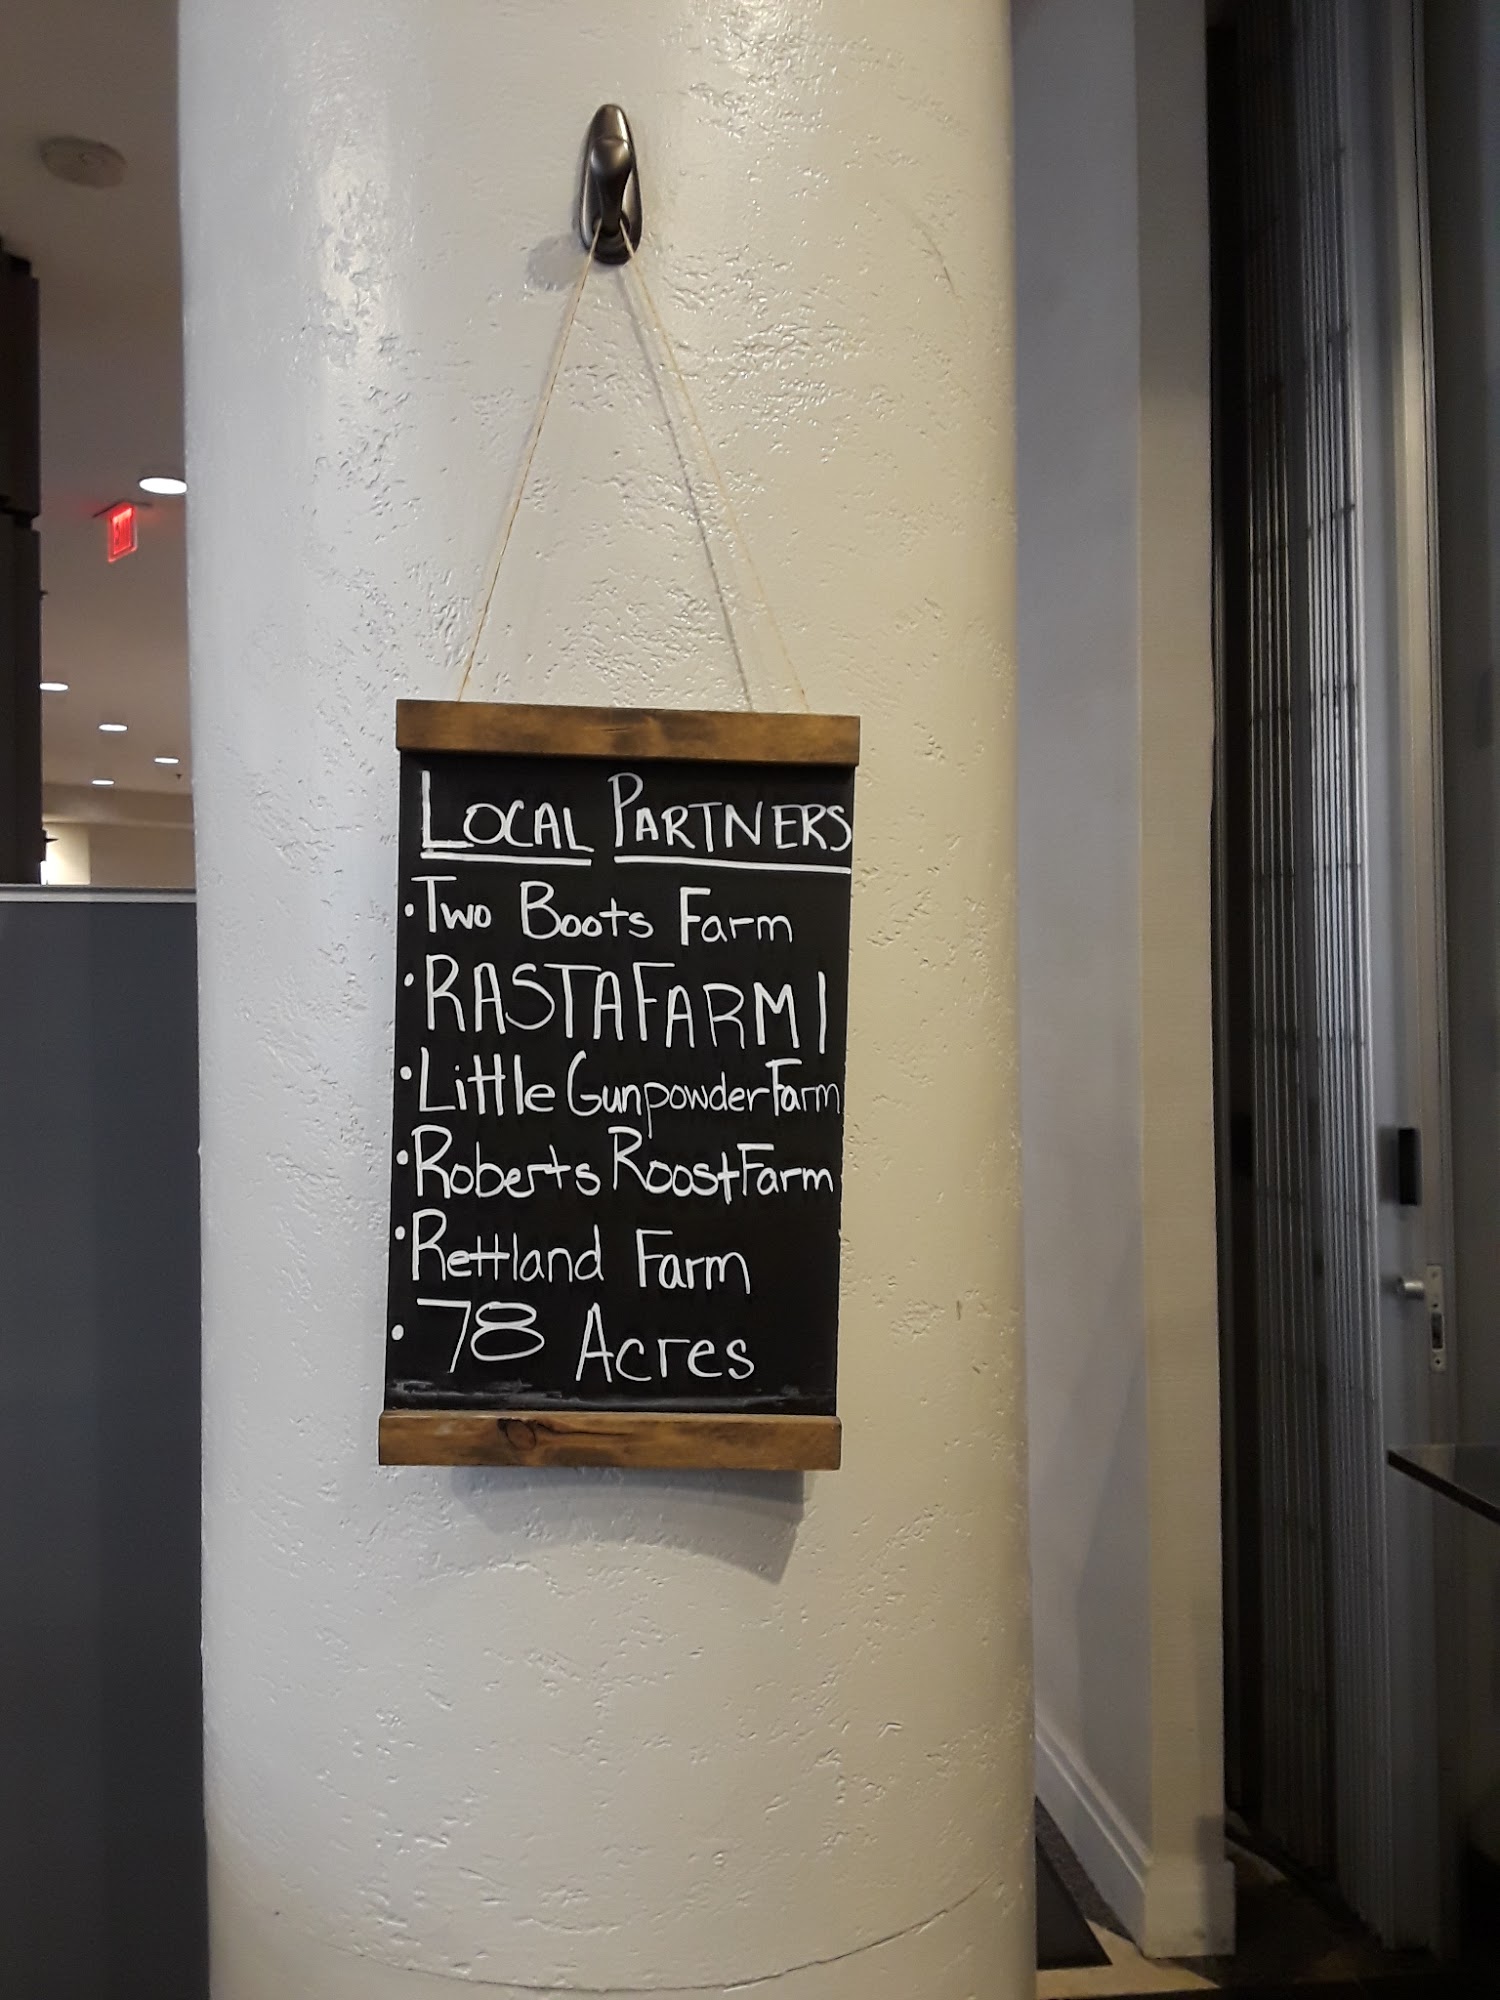 EXIT
LOCAL PARTNERS
• Two Boots Farm
• RASTAFARMI
• Little Gunpowder Farm
• Roberts Roost Farm
• Rettland Farm
• 78 Acres